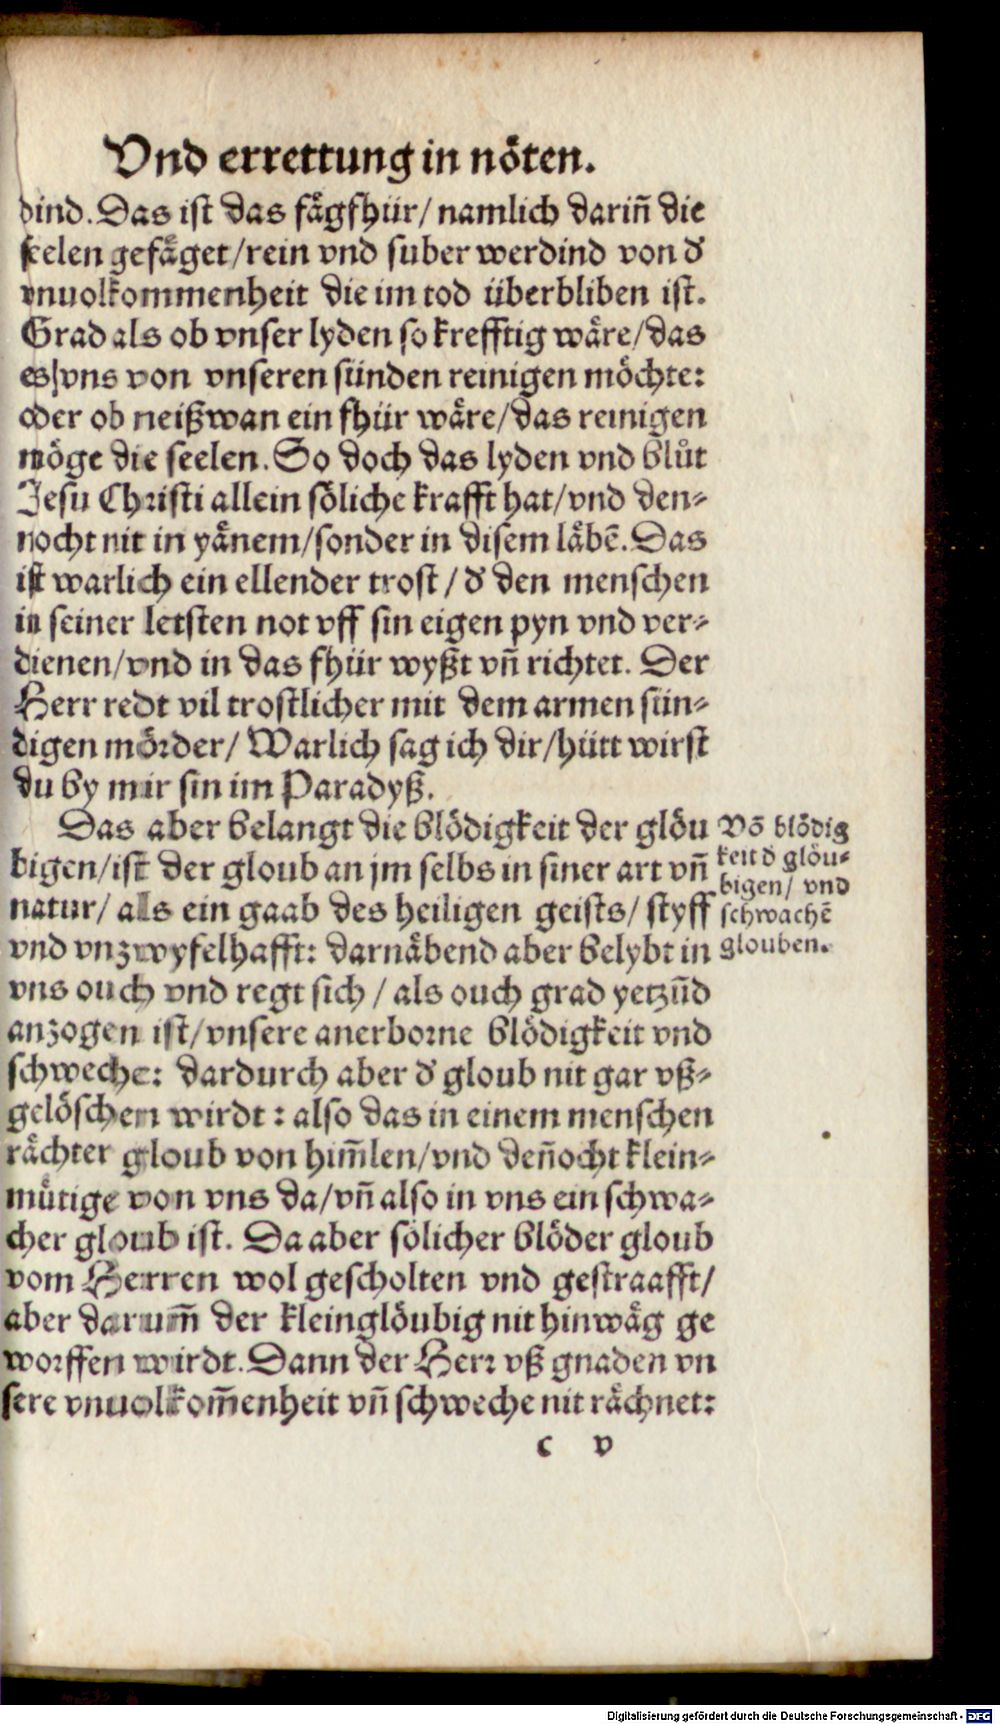 Vnd errettung in nöten.
dind. Das ist das fägfhür/ namlich dariñ die
seelen gefäget/rein vnd suber werdind von d'
vnuolkommenheit die im tod überbliben ist.
Grad als ob vnser lyden so krefftig wäre/das
es vns von vnseren sünden reinigen möchte:
oder ob neißwan ein fhür wäre/das reinigen
möge die seelen. So doch das lyden vnd blůt
Jesu Christi allein söliche krafft hat/vnd den⸗
nocht nit in yänem/sonder in disem läbē. Das
ist warlich ein ellender trost/ d' den menschen
in seiner letsten not vff sin eigen pyn vnd ver⸗
dienen/vnd in das fhür wyßt vñ richtet. Der
Herr redt vil trostlicher mit dem armen sün⸗
digen mörder/ Warlich sag ich dir/hütt wirst
du by mir sin im Paradyß.
Das aber belangt die blödigkeit der glöu
bigen/ist der gloub an jm selbs in siner art vñ
natur/ als ein gaab des heiligen geists/ styff
vnd vnzwyfelhafft: darnäbend aber belybt in
vns ouch vnd regt sich / als ouch grad yetzūd
anzogen ist/vnsere anerborne blödigkeit vnd
schweche: dardurch aber d' gloub nit gar vß⸗
gelöschen wirdt : also das in einem menschen
rächter gloub von him̄len/vnd deñocht klein⸗
mütige von vns da/vñ also in vns ein schwa⸗
cher gloub ist. Da aber sölicher blöder gloub
vom Herren wol gescholten vnd gestraafft/
aber darum̄ der kleinglöubig nit hinwäg ge
worffen wirdt. Dann der Herr vß gnaden vn
sere vnuolkom̄enheit vñ schweche nit rächnet:
c v
Võ blödig
keit d' glöu⸗
bigen/ vnd
schwachē
glouben.
Digitalisierung gefördert durch die Deutsche Forschungsgemeinschaft - DFG